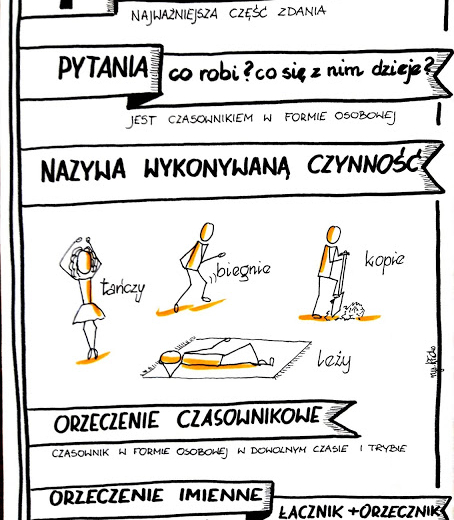 NAJWAŻNIEJSZA CZĘŚĆ ZDANIA
PYTANIA co robi? co się z nim dzieje?
JEST CZASOWNIKIEM W FORMIE OSOBOWEJ
NAZYWA WYKONYWANĄ CZYNNOŚĆ
tańczy
biegnie
kopie
leży
ORZECZENIE CZASOWNIKOWE
CZASOWNIK W FORMIE OSOBOWEJ W DOWOLNYM CZASIE I TRYBIE
ORZECZENIE IMIENNE
ŁĄCZNIK + ORZECZNIK